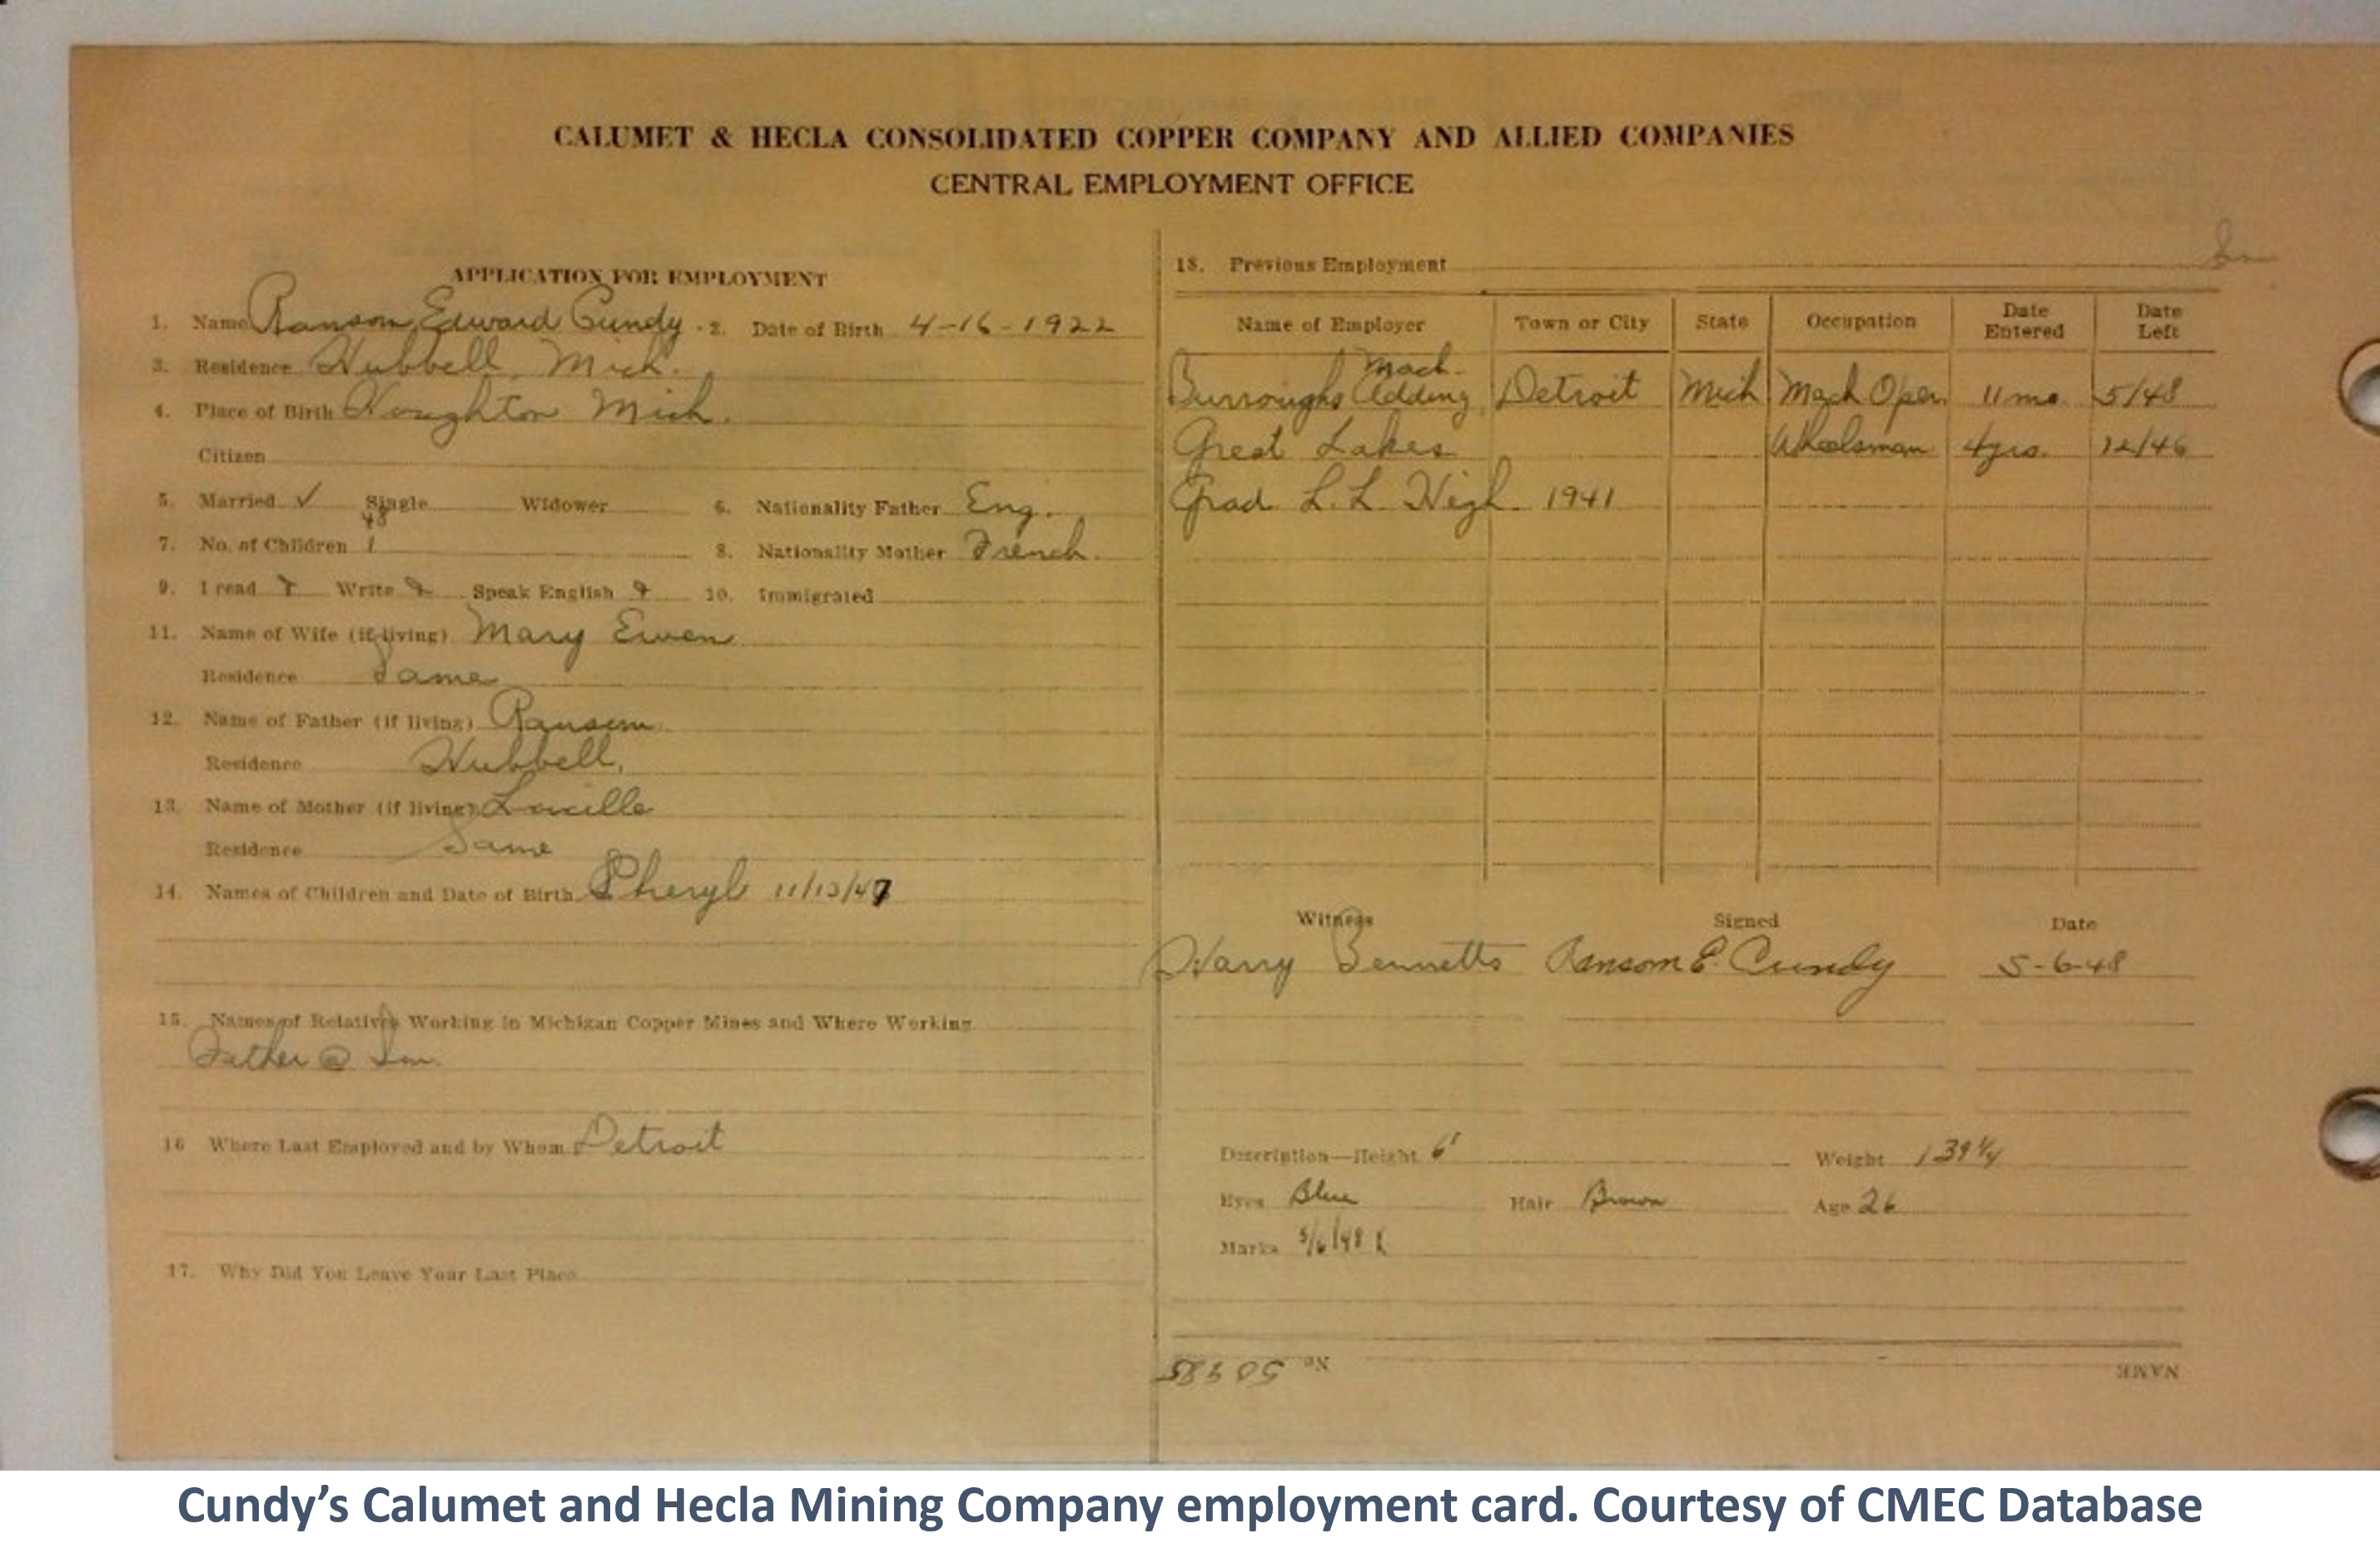 CALUMET & HECLA CONSOLIDATED COPPER COMPANY AND ALLIED COMPANIES
CENTRAL EMPLOYMENT OFFICE
APPLICATION FOR EMPLOYMENT
1. Name Ransom Edward Cundy 2. Date of Birth 4-16-1922
3. Residence Hubbell, Mich.
4. Place of Birth Houghton Mich.
Citizen
5. Married ✓ Single Widower 6. Nationality Father Eng.
48
7. No. of Children 1 8. Nationality Mother French.
9. I read Write Speak English 10. Immigrated
11. Name of Wife (if living) Mary Ewen
Residence Same
12. Name of Father (if living) Ransom
Residence Hubbell,
13. Name of Mother (if living) Lucille
Residence Same
14. Names of Children and Date of Birth Cheryl 11/13/47
15. Names of Relatives Working in Michigan Copper Mines and Where Working
Father @ Sm.
16 Where Last Employed and by Whom Detroit
17. Why Did You Leave Your Last Place
18. Previous Employment Sm
Name of Employer Town or City State Occupation Date Entered Date Left
Mach.
Burroughs Adding Detroit Mich Mach Oper 11 mo. 5/48
Great Lakes Wheelsman 4 yrs. 12/46
Grad L. L. High 1941
Witness Signed Date
Harry Bennetts Ransom E. Cundy 5-6-48
Description—Height 6' Weight 139 1/4
Eyes Blue Hair Brown Age 26
Marks 5/6/48
No.
NAME
Cundy’s Calumet and Hecla Mining Company employment card. Courtesy of CMEC Database